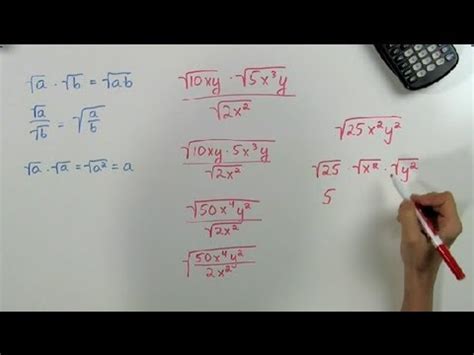 √a · √b = √ab
√a / √b = √(a/b)
√a · √a = √a² = a
√10xy · √5x³y / √2x²
√10xy · 5x³y / √2x²
√50x⁴y² / √2x²
√(50x⁴y² / 2x²)
√25x²y²
√25 · √x² · √y²
5